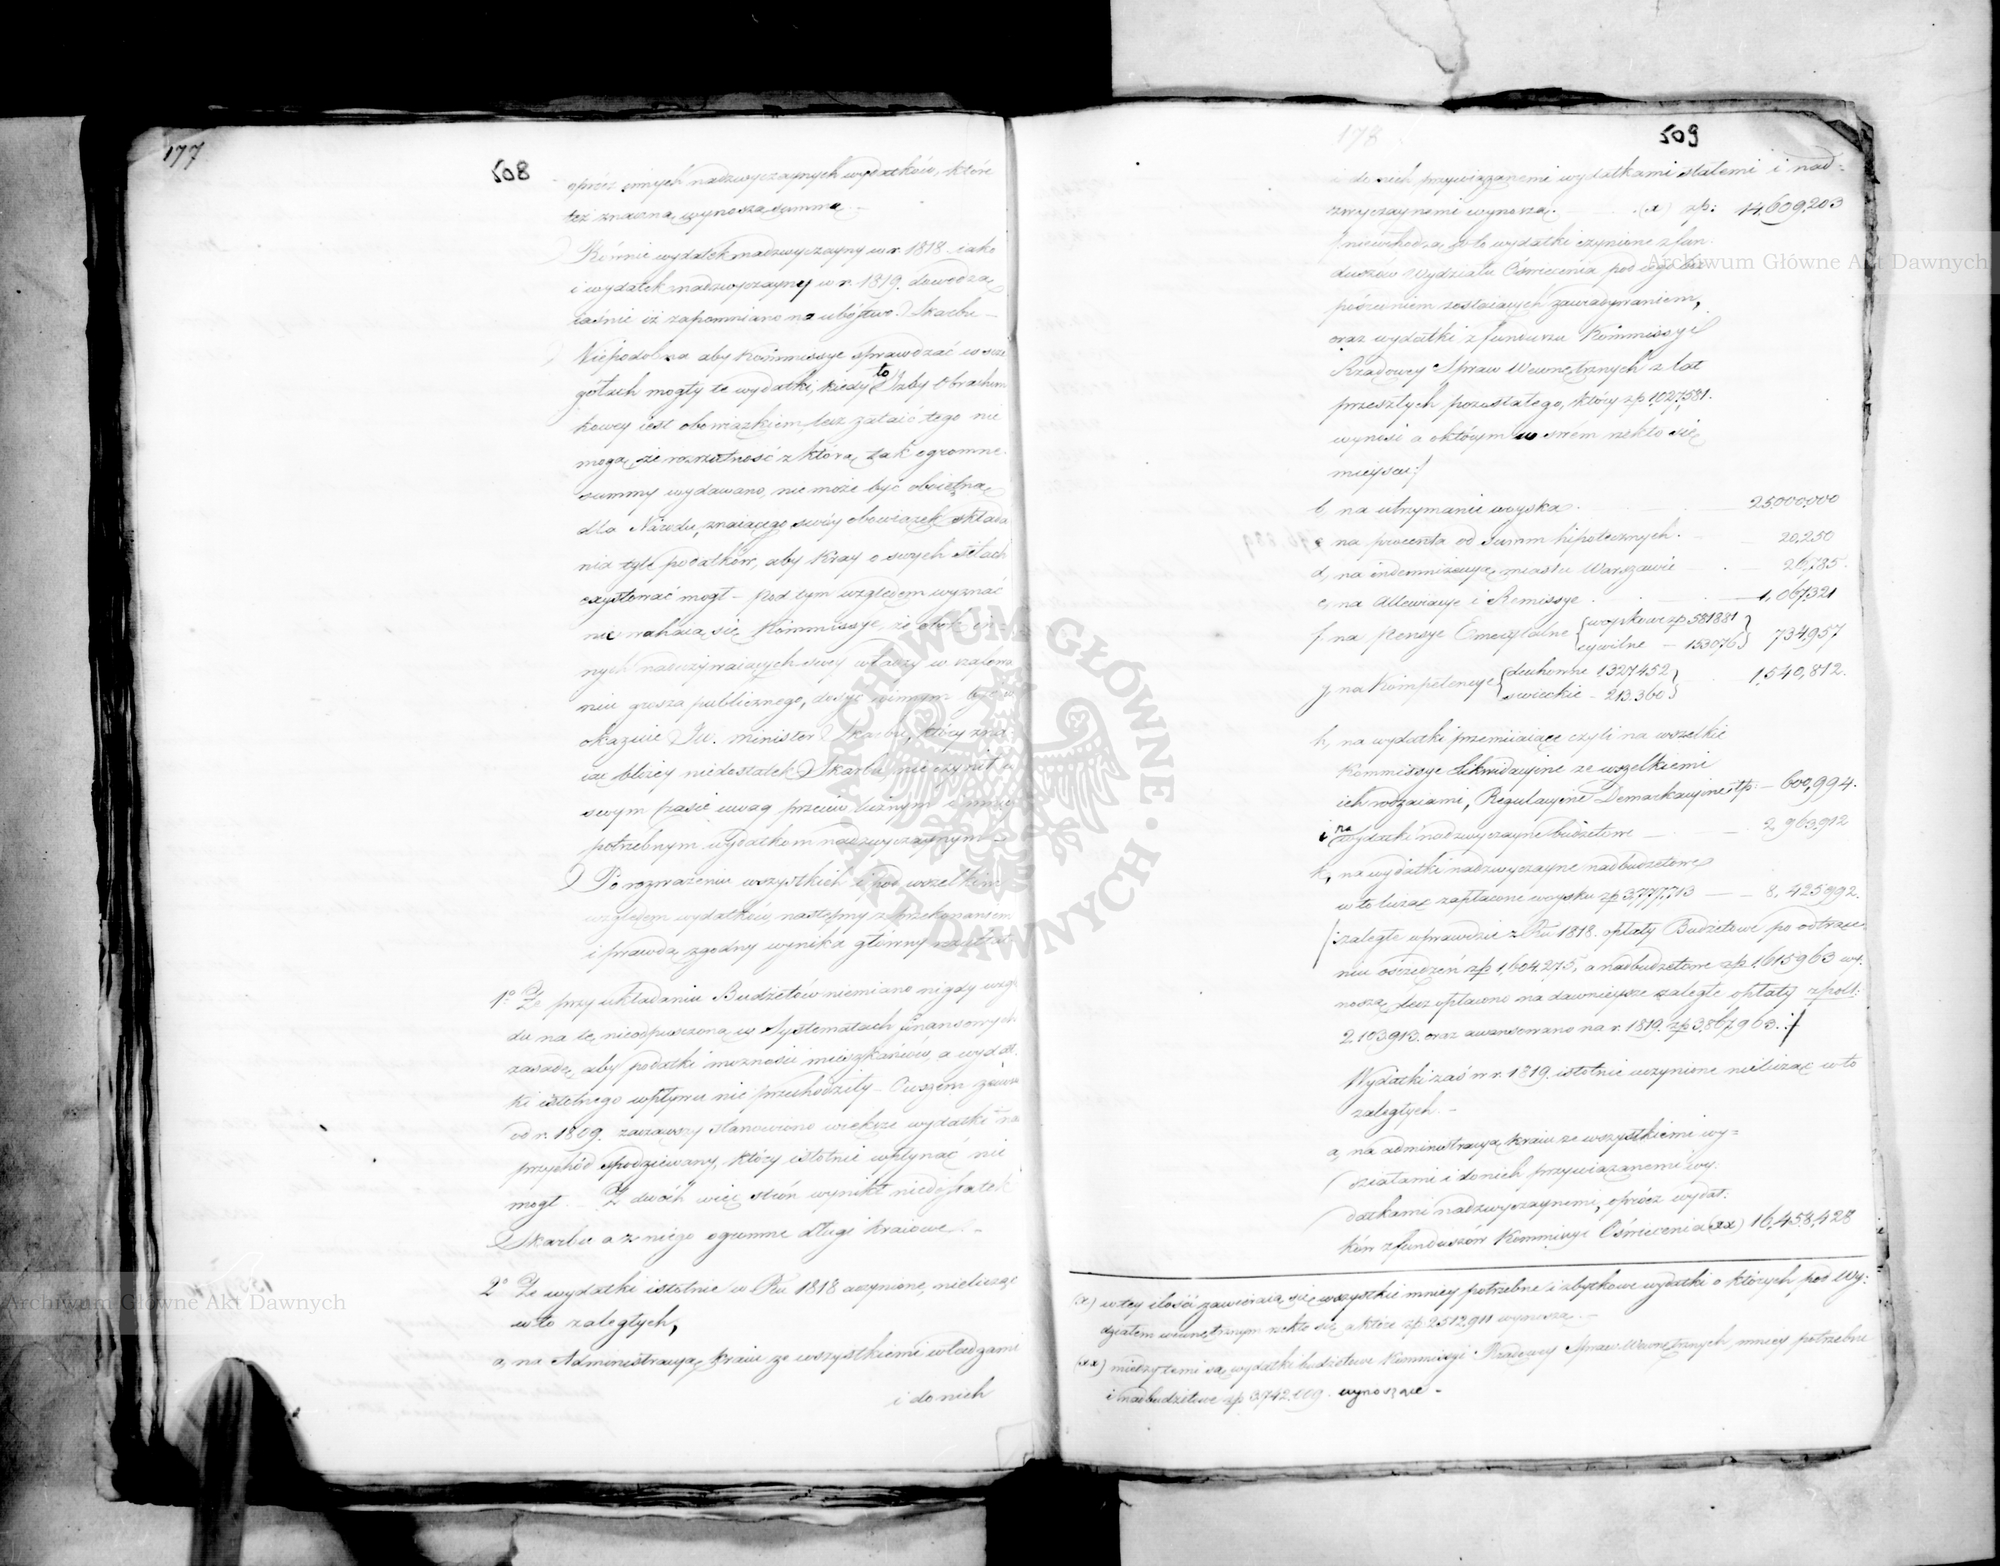 177
508
oprócz innych nadzwyczaynych wydatków, które
też znaczną wynoszą summę. –
Równie wydatek nadzwyczayny w r. 1818 iako
i wydatek nadzwyczayney w r. 1819. dowodzą
iaśnie iż zapomniano na ubóstwo Skarbu –
Niepodobna aby Kommissye sprawdzać w szcze
gółach mogły te wydatki, kiedy to Izby Obrachun
kowey iest obowiązkiem, lecz zataić tego nie
mogą, że rozrzutność z którą tak ogromne
summy wydawano, nie może być oboiętną
dla Narodu, znaiącego swóy obowiązek składa
nia tyle podatków, aby Kray o swych siłach
exystować mógł – Pod tym względem wyznać
nie wahaią się Kommissye, że obok in-
nych nadużywaiących swey władzy w szafowa
niu grosza publicznego, dosyć winnym być
okazuie JW. Minister Skarbu, który zna
iąc bliżey niedostatek Skarbu, nie czynił w
swym czasie uwag przeciw licznym i mniey
potrzebnym wydatkom nadzwyczaynym –
Po rozważeniu wszystkich i pod wszelkim
względem wydatków, następny z przekonaniem
i prawdą zgodny wynika główny rezultat
1o Że przy układaniu Budżetów niemiano nigdy wzglę
du na tę nieodpuszczoną w Systematach finansowych
zasadę, aby podatki możności mieszkańców, a wydat
ki istotnego wpływu nie przechodziły – Owszem zawsze
od r. 1809. zacząwszy stanowiono większe wydatki na
przychód spodziewany, który istotnie wpłynąć nie
mógł. – Z dwóch więc stron wynikł niedostatek
Skarbu a z niego ogromne długi kraiowe. –
2o Że wydatki istotnie w Rku 1818 uczynione, nielicząc
w to zaległych,
a, na Administracyą kraiu ze wszystkiemi władzami
i do nich
178
509
i do nich przywiązanemi wydatkami stałemi i nad-
zwyczaynemi wynoszą. (x) zp: 14,609,203
/niewchodzą w to wydatki czynione z fun-
duszów Wydziału Oświecenia pod iego bez-
pośredniem zostaiących zawiadywaniem,
oraz wydatki z funduszu Kommissyi
Rządowey Spraw Wewnętrznych z lat
przeszłych pozostałego, który zp 1,027,581.
wynosi a o którym w swém rzekło się
mieyscu:/
b, na utrzymanie woyska. 25,000,000
c, na procenta od summ hipotecznych. – 20,250
d, na indemnizacyą miastu Warszawie – 26,785.
e, na Allewiacye i Remissye 1,067,321
f, na Pensye Emerytalne {woyskowe zp 581881 cywilne – 153076} 734,957
g, na Kompetencye {duchowne 1327452 swieckie – 213360} 1,540,812.
h, na wydatki przemiiaiące czyli na wszelkie
Kommissye Likwidacyine ze wszelkiemi
ich rodzaiami, Regulacyine Demarkacyine zp: – 600,994.
i, na wydatki nadzwyczayne budżetowe – 2,963,912
k, na wydatki nadzwyczayne nadbudżetowe
w to licząc zapłacone woysku zp 3,777,713 – 8,425,992.
/:zaległe wprawdzie z Rku 1818. opłaty Budżetowe po odtrące-
niu oszczędzeń zp 1,604,275, a nadbudżetowe zp 1,615963 wy-
noszą, lecz opłacono na dawnieysze zaległe opłaty zpolt:
2,103,913. oraz awansowano na r. 1819. zp 3,867,963. :/
Wydatki zaś w r. 1819. istotnie uczynione nielicząc w to
zaległych. –
a, na administracyą kraiu ze wszystkiemi wy-
działami i do nich przywiązanemi wy-
datkami nadzwyczaynemi, oprócz wydat-
ków z funduszów Kommissyi Oświecenia (xx) 16,458,428
(x) w tey ilości zawieraią się wszystkie mniey potrzebne i zbytkowe wydatki o których pod Wy-
działem wewnętrznym rzekło się a które zp 2512,911 wynoszą. –
(xx) między temi są wydatki budżetowe Kommissyi Rządowey Spraw Wewnętrznych, mniey potrzebne
i nadbudżetowe zp 3,742,009. wynoszące –
Archiwum Główne Akt Dawnych
Archiwum Główne Akt Dawnych
ARCHIWUM GŁÓWNE · AKT DAWNYCH ·